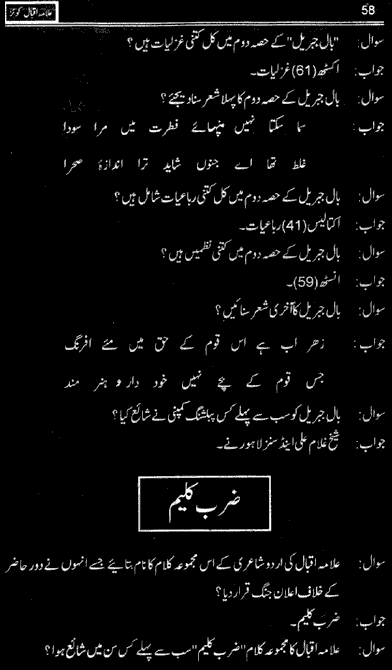 58
علامہ اقبال کوئز
سوال: "بال جبریل" کے حصہ دوم میں کل کتنی غزلیات ہیں؟
جواب: اکسٹھ (61) غزلیات۔
سوال: بال جبریل کے حصہ دوم کا پہلا شعر سنا دیجئے؟
جواب: سما سکتا نہیں پنہائے فطرت میں مرا سودا
غلط تھا اے جنوں شاید ترا اندازۂ صحرا
سوال: بال جبریل کے حصہ دوم میں کل کتنی رباعیات شامل ہیں؟
جواب: اکتالیس (41) رباعیات۔
سوال: بال جبریل کے حصہ دوم میں کتنی نظمیں ہیں؟
جواب: انسٹھ (59)۔
سوال: بال جبریل کا آخری شعر سنائیں؟
جواب: زھر اب ہے اس قوم کے حق میں مئے افرنگ
جس قوم کے بچے نہیں خود دار و ہنر مند
سوال: بال جبریل کو سب سے پہلے کس پبلشنگ کمپنی نے شائع کیا؟
جواب: شیخ غلام علی اینڈ سنز لاہور نے۔
ضرب کلیم
سوال: علامہ اقبال کی اردو شاعری کے اس مجموعہ کلام کا نام بتائیے جسے انہوں نے دور حاضر
کے خلاف اعلان جنگ قرار دیا؟
جواب: ضرب کلیم۔
سوال: علامہ اقبال کا مجموعہ کلام "ضرب کلیم" سب سے پہلے کس سن میں شائع ہوا؟